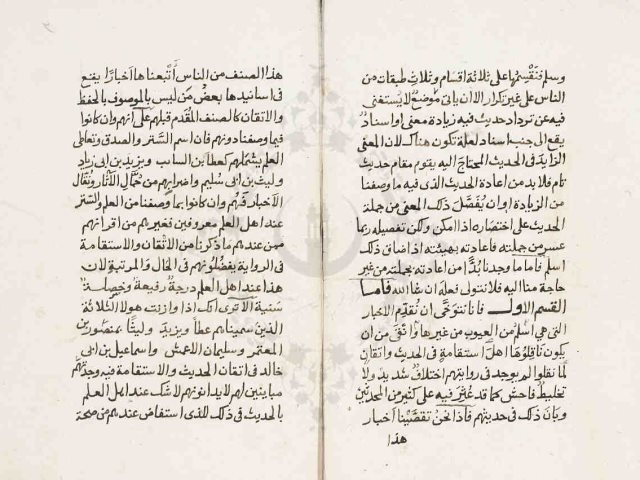 وسلم فنقسمها على ثلاثة اقسام وثلاث طبقات من
الناس على غير تكرار الا ان ياتى موضع لا يستغنى
فيه عن ترداد حديث فيه زيادة معنى او اسناد
يقع الى جنب اسناد لعلة تكون هناك لان المعنى
الزايد فى الحديث المحتاج اليه يقوم مقام حديث
تام فلا بد من اعادة الحديث الذى فيه ما وصفنا
من الزيادة او ان يُفَصَّلَ ذلك المعنى من جملة
الحديث على اختصاره اذا امكن ولكن تفصيله ربما
عسر من جملته فاعادته بهيئته اذا ضاق ذلك
اسلم فاما ما وجدنا بُدًّا من اعادته بجملته من غير
حاجة منا اليه فلا نتولى فعله ان شا الله فاما
القسم الاول فانا نتوخى ان نُقَدِّم الاخبار
التى هى اسلم من العيوب من غيرها وانقى من ان
يكون ناقلوها اهل استقامة فى الحديث واتقان
لما نقلوا لم يوجد فى روايتهم اختلاف شديد ولا
تخليط فاحش كما قد عُثِرَ فيه على كثير من المحدثين
وبان ذلك فى حديثهم فاذا نحن تقصَّينا اخبار
هذا
هذا الصنف من الناس أَتبعناها أخبارًا يقع
فى اسانيدها بعضُ مَن ليس بالموصوف بالحفظ
والاتقان كالصنف المقدم قبلهم على أنهم وان كانوا
فيما وصفنا دونهم فان اسم السَّتر والصدق وتعاطى
العلم يشملهم كعطا بن السايب ويزيد بن ابى زياد
وليث بن ابى سُليم واضرابهم من حُمَّال الآثار ونُقَّال
الاخبار فهم وان كانوا بما وصفنا من العلم والستر
عند اهل العلم معروفين فغيرهم من اقرانهم
ممن عندهم ما ذكرنا من الاتقان والاستقامة
فى الرواية يفضُلُونهم فى الحال والمرتبة لان
هذا عند اهل العلم درجةٌ رفيعةٌ وخصلةٌ
سَنية الا ترى انك اذا وازنت هولا الثلاثة
الذين سميناهم عطآ ويزيد وليثًا بمنصور بن
المعتمر وسليمان الاعمش واسماعيل بن ابى
خالد فى اتقان الحديث والاستقامة فيه وجدتهم
مباينين لهم لا يدانونهم لا شك عند اهل العلم
بالحديث فى ذلك للذى استفاض عندهم من صحة